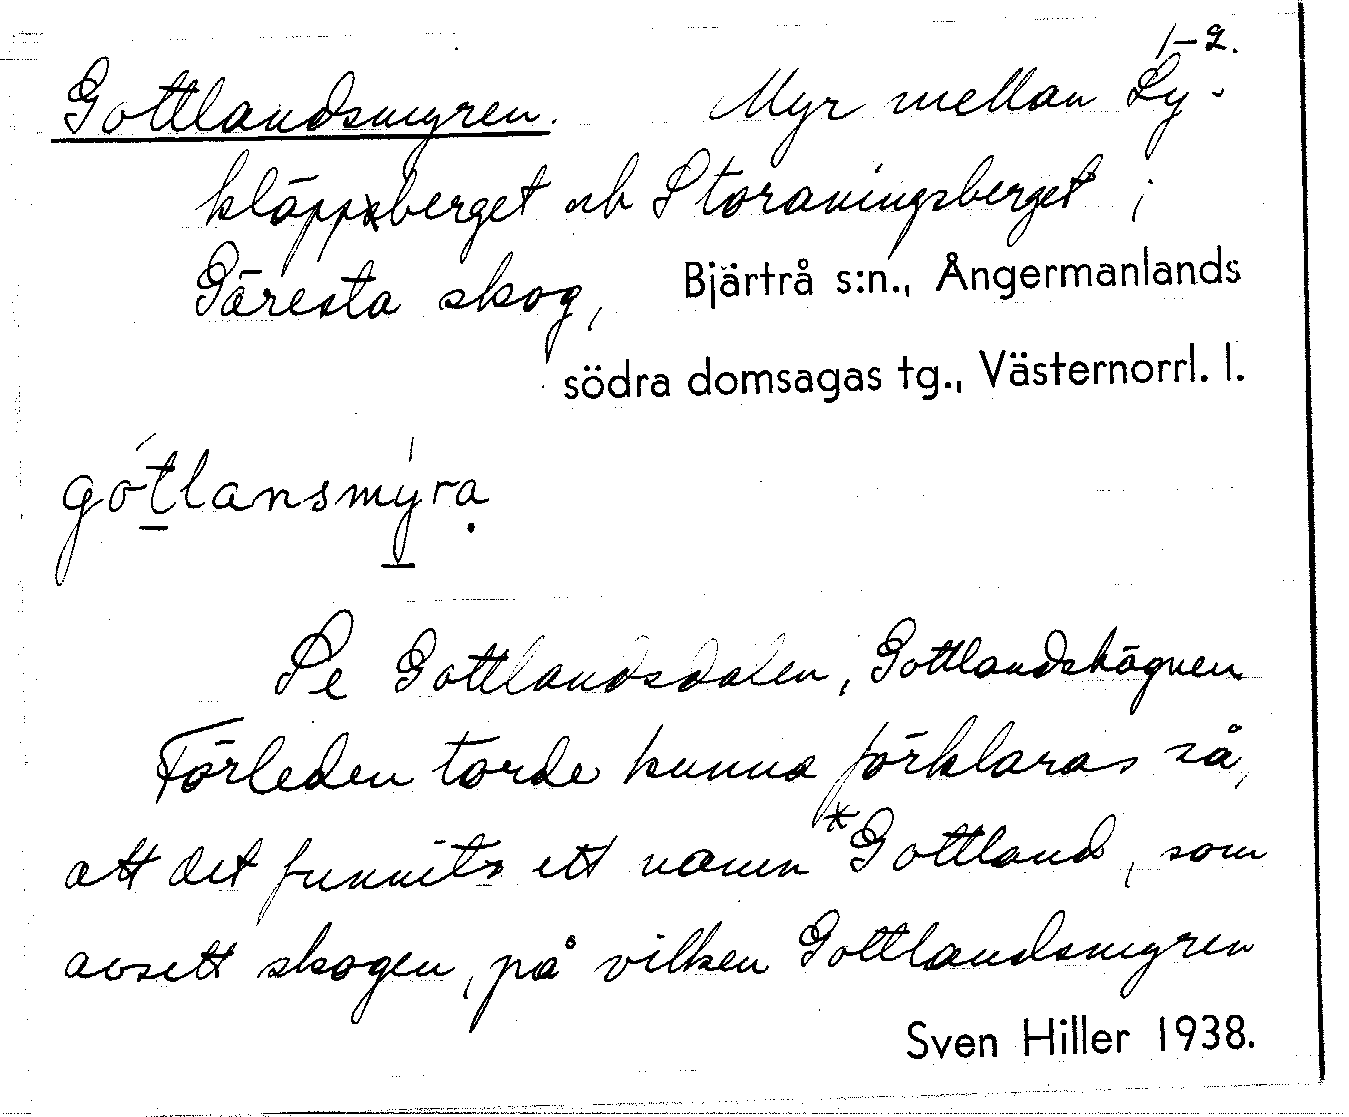 1–2.
Gottlandsmyren. Myr mellan Ly-
kläppsberget och Storaningsberget i
Gäresta skog, Bjärtrå s:n., Ångermanlands
södra domsagas tg., Västernorrl. l.
gótlansmýra
Se Gottlandsdalen, Gottlandshägnen
Förleden torde kunna förklaras så,
att det funnits ett namn *Gottland, som
avsett skogen, på vilken Gottlandsmyren
Sven Hiller 1938.